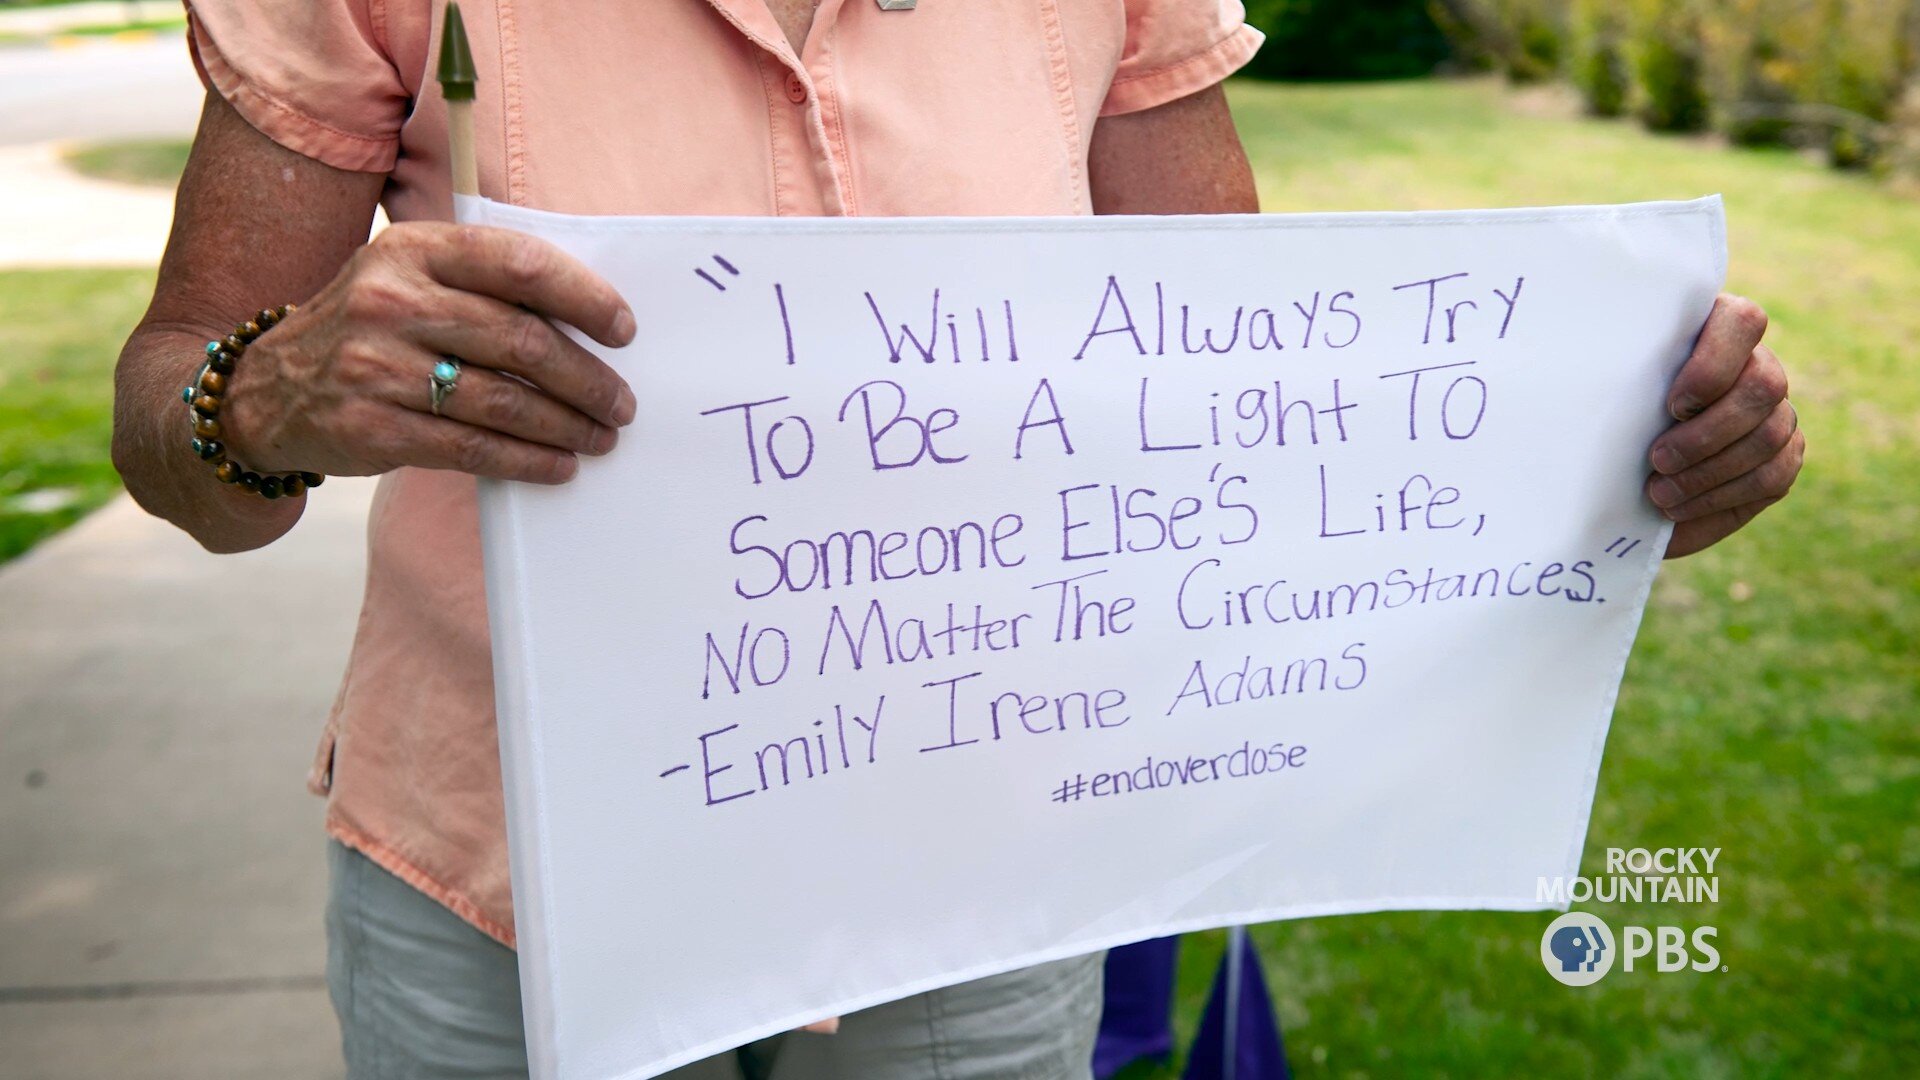 "I Will Always Try
To Be A Light To
Someone Else's Life,
No Matter The Circumstances."
-Emily Irene Adams
#endoverdose
ROCKY
MOUNTAIN
PBS